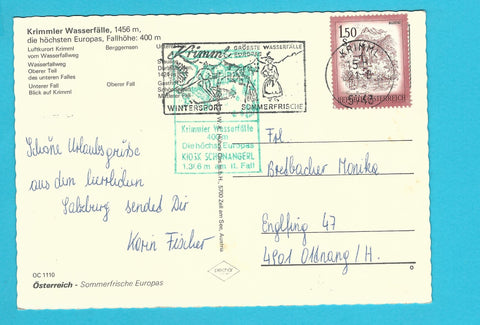 Krimmler Wasserfälle, 1456 m,
die höchsten Europas, Fallhöhe: 400 m
Luftkurort Krimml
vom Wasserfallweg
Berggemsen
Wasserfallweg
Oberer Teil
des unteren Falles
Unterer Fall
Oberer Fall
Blick auf Krimml
Krimml
GRÖSSTE WASSERFÄLLE
EUROPAS
WINTERSPORT
SOMMERFRISCHE
KRIMML
5743
1,50
REPUBLIK ÖSTERREICH
Krimmler Wasserfälle
400m
Die höchsten Europas
KIOSK SCHÖNANGERL
Schöne Urlaubsgrüße
aus dem herrlichen
Salzburg sendet Dir
Karin Fischer
Frl.
Breitbacher Monika
Englfing 47
4901 Ottnang/H.
5700 Zell am See, Austria
OC 1110
Österreich - Sommerfrische Europas